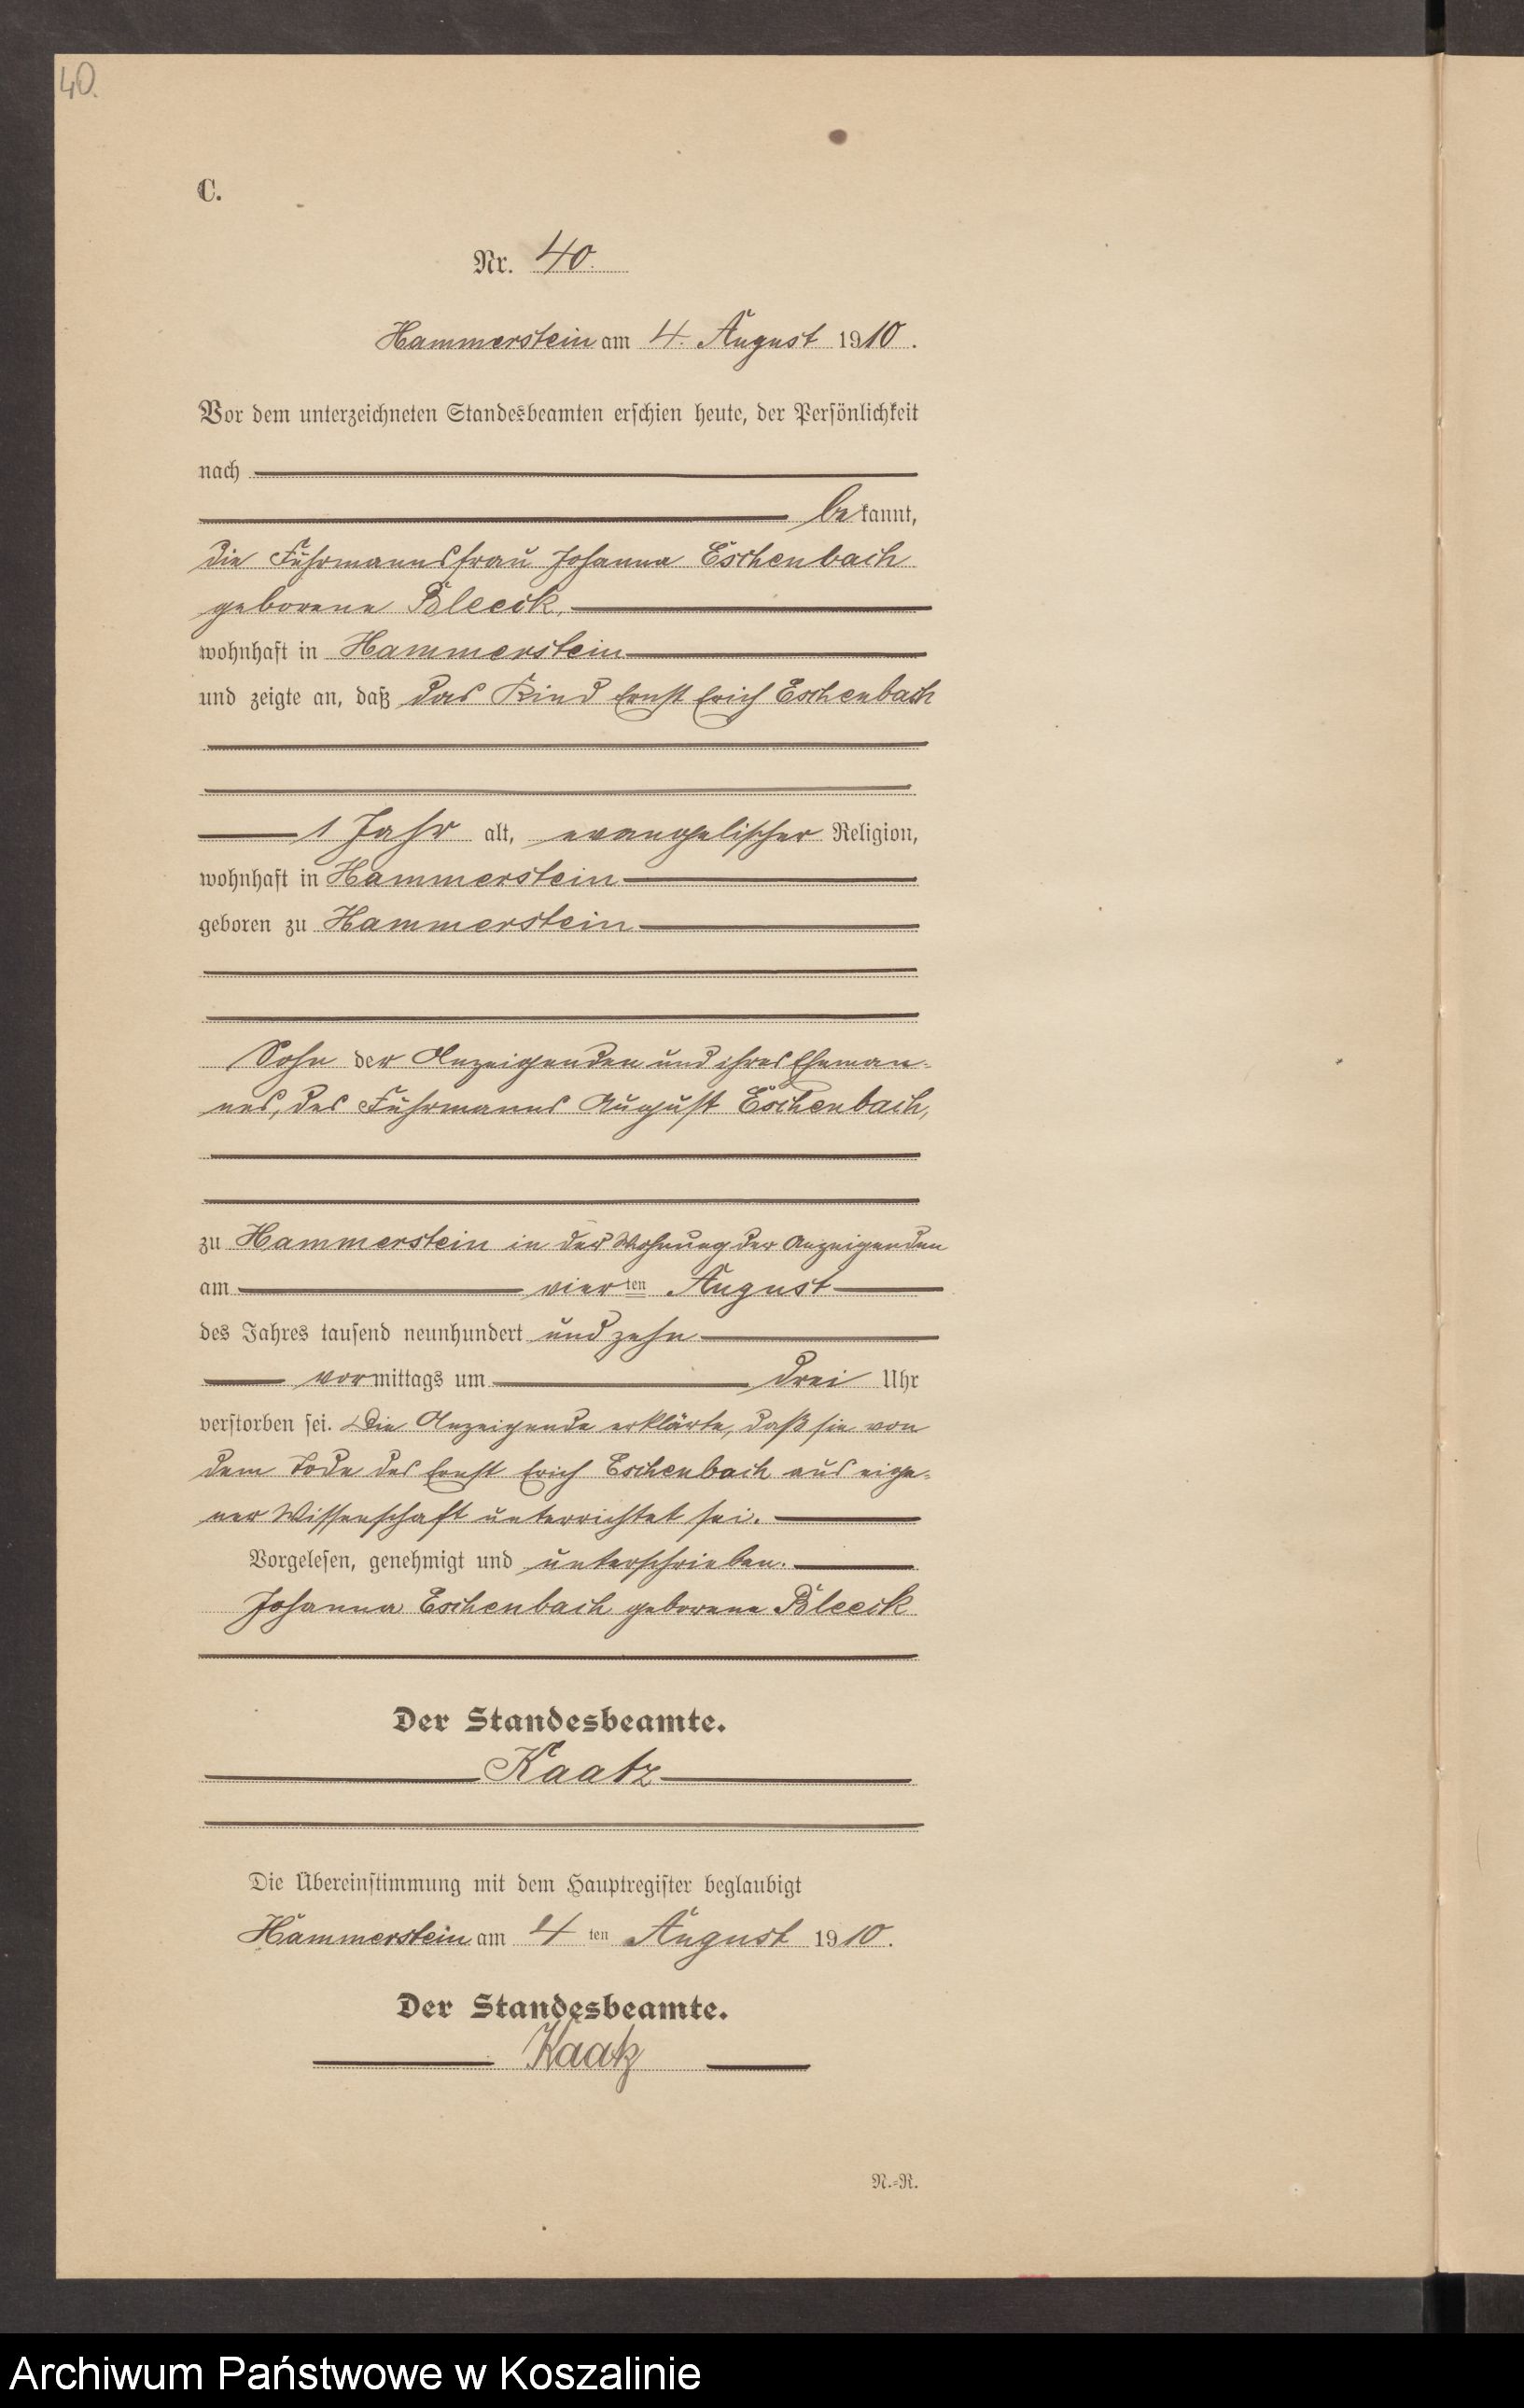 40.
C.
Nr. 40.
Hammerstein am 4. August 1910.
Vor dem unterzeichneten Standesbeamten erschien heute, der Persönlichkeit
nach
bekannt,
die Fuhrmannsfrau Johanna Eschenbach
geborene Bleeck,
wohnhaft in Hammerstein
und zeigte an, daß das Kind Ernst Erich Eschenbach
1 Jahr alt, evangelischer Religion,
wohnhaft in Hammerstein
geboren zu Hammerstein
Sohn der Anzeigenden und ihres Eheman-
nes, des Fuhrmanns August Eschenbach,
zu Hammerstein in der Wohnung der Anzeigenden
am vierten August
des Jahres tausend neunhundert und zehn
vormittags um drei Uhr
verstorben sei. Die Anzeigende erklärte, daß sie von
dem Tode des Ernst Erich Eschenbach aus eige-
ner Wissenschaft unterrichtet sei.
Vorgelesen, genehmigt und unterschrieben.
Johanna Eschenbach geborene Bleeck
Der Standesbeamte.
Kaatz
Die Übereinstimmung mit dem Hauptregister beglaubigt
Hammerstein am 4ten August 1910.
Der Standesbeamte.
Kaatz
N.-R.
Archiwum Państwowe w Koszalinie